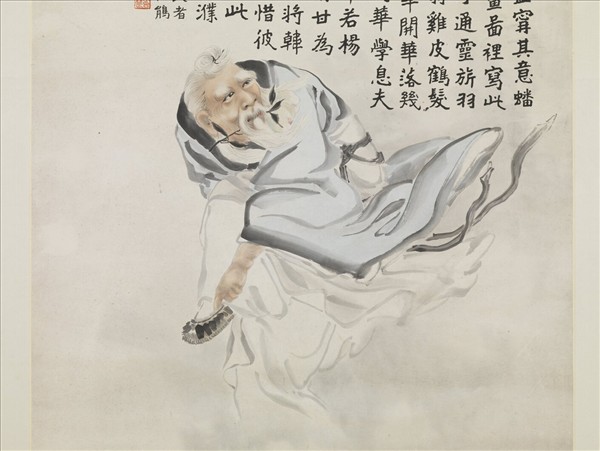 其意蟠
畫啚裡寫此
通靈旂羽
雞皮鶴髮
開華落幾
華學息夫
若楊
甘為
將韓
惜彼
此
濮
者